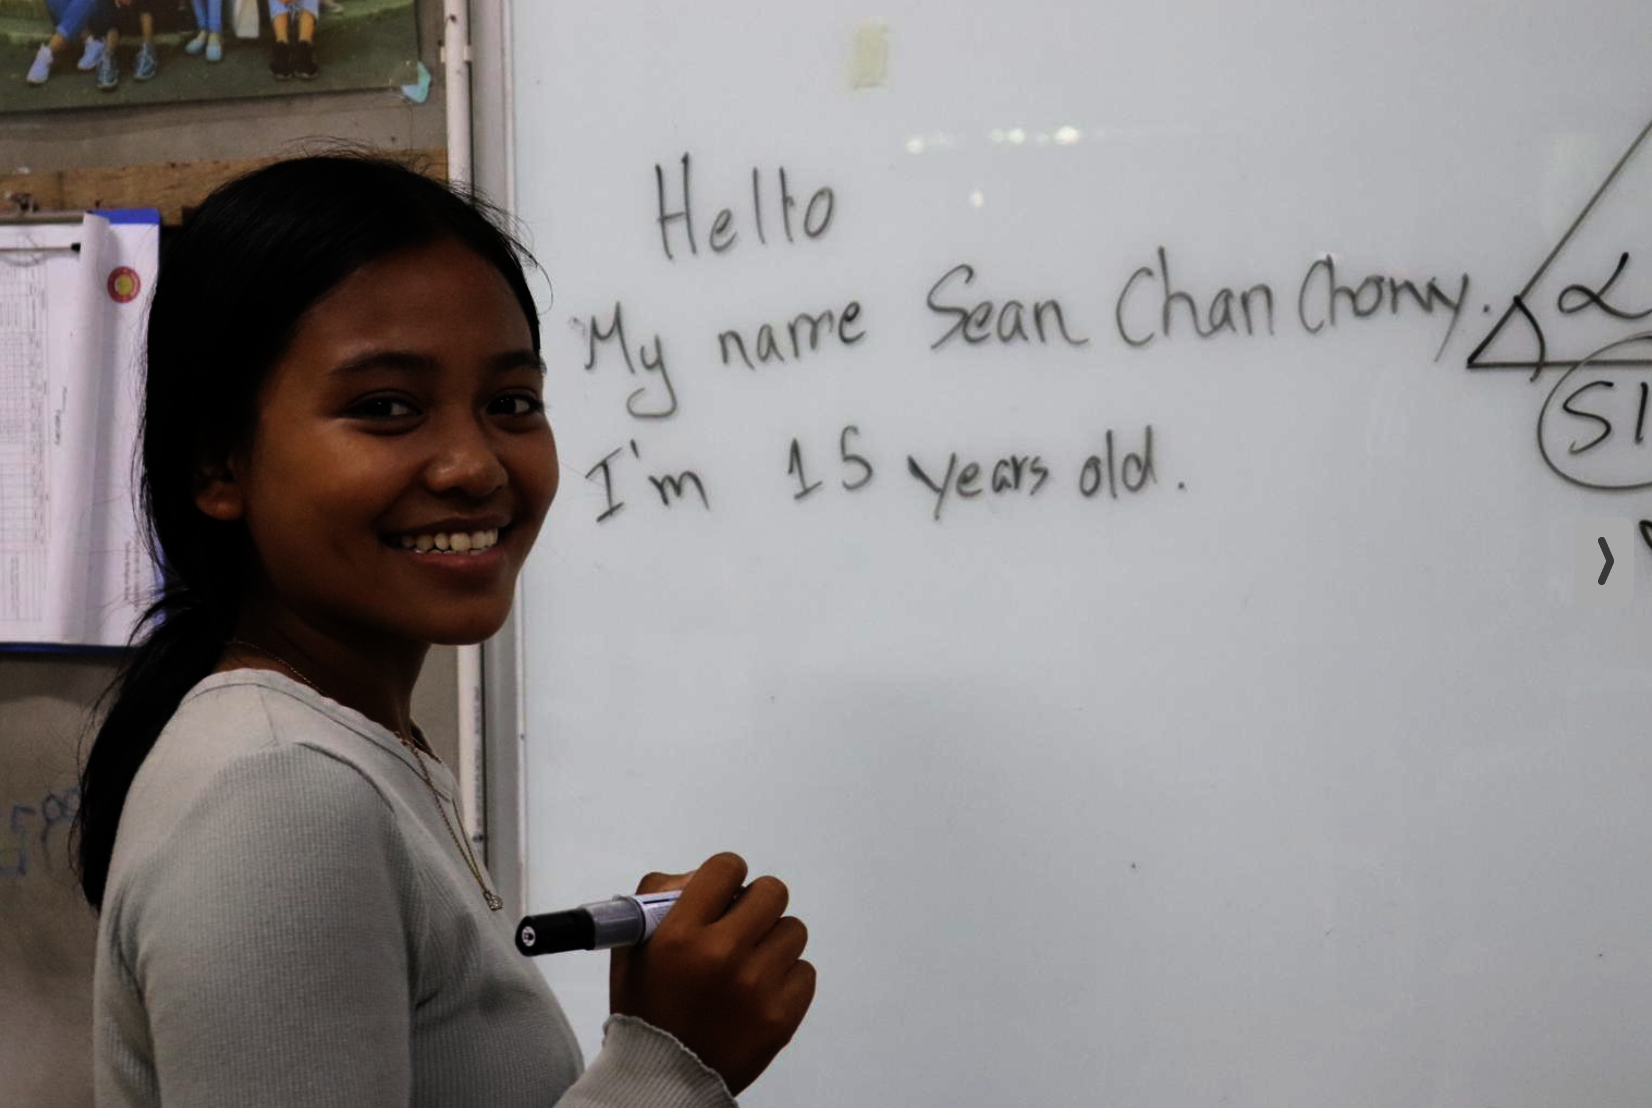 Hello
My name Sean Chan Chomy.
I'm 15 years old.
α